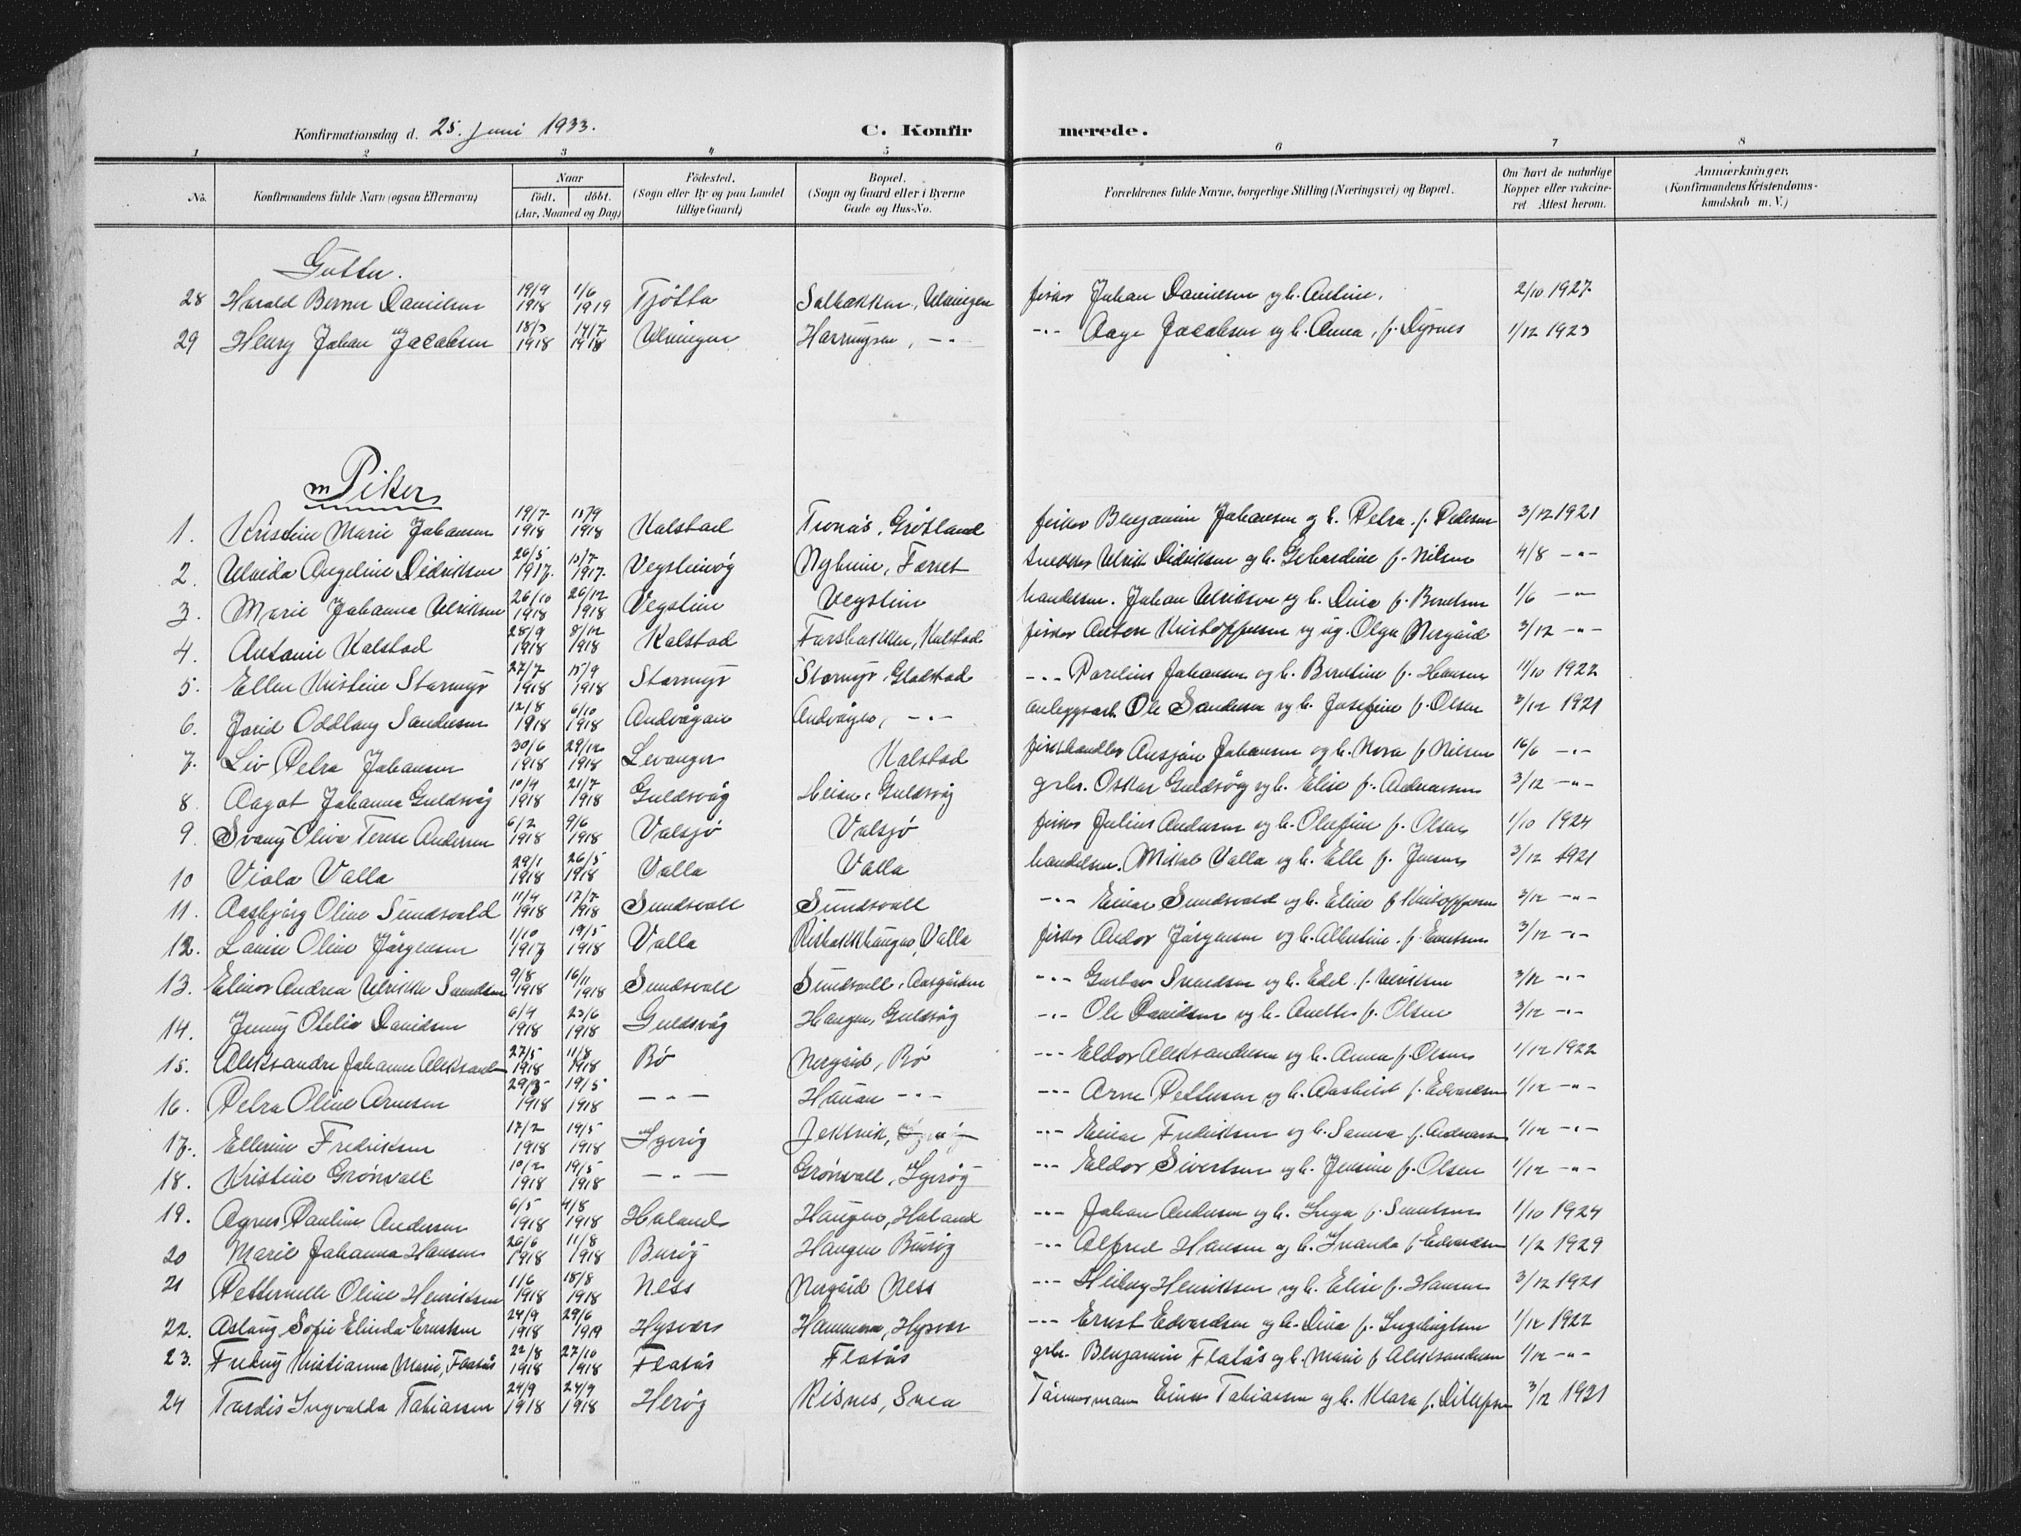 Konfirmationsdag d. 25. Juni 1933. C. Konfirmerede.
1 2 3 4 5 6 7 8
No. Konfirmandens fulde Navn (ogsaa Efternavn) Naar födt. döbt. (Aar, Maaned og Dag) Födested. (Sogn eller By og paa Landet tillige Gaard) Bopæl. (Sogn og Gaard eller i Byerne Gade og Hus-No. Forældrenes fulde Navne, borgerlige Stilling (Næringsvei) og Bopæl. Om havt de naturlige Kopper eller vakcineret Attest herom. Anmærkninger. (Konfirmandens Kristendomskundskab m. V.)
Gutter.
28 Harald Berner Danielsen 19/9 1918 1/6 1919 Tjøtta fisker Johan Danielsen og h. Antine. 2/10 1927
29 Henry Johan Jacobsen 18/3 1918 14/7 1918 -"- -"- Aage Jacobsen og h. Anna, f. Dyrnes 1/12 1923
Piker
1. Kristine Marie Johansen 19/7 1918 15/9 1918 Kalstad Tronås, Grøtland fisker Benjamin Johansen og h. Petra f. Pedersen 3/12 1921
2. Angeline Didriksen 26/5 1917 15/7 1917 Vegsteinvåg Nyheim, Færset snekker Ulrik Didriksen og h. Gerhardine f. Nilsen 4/8 -"-
3. Marie Johanna Ulriksen 26/10 1918 26/12 1918 Vegstein Vegstein handelsm. Johan Ulriksen og h. Dina f. Berntsen 1/6 -"-
4. Antonie Kalstad 28/9 1918 8/12 1918 Kalstad Forsbakken, Kalstad fisker Anton Kristoffersen og ug. Olga Nergård 3/12 -"-
5. Ellen Kristine Stormyr 27/7 1918 15/9 1918 Stormyr Stormyr, Gladstad -"- Parelius Johansen og h. Berntine f. Hansen 11/10 1922
6. Jorid Oddlaug Sandersen 12/8 1918 6/10 1918 Andvågan Andvågen, -"- anleggsarb. Ole Sandersen og h. Josefine f. Olsen 3/12 1921
7. Liv Petra Johansen 30/6 1918 29/12 1918 Levanger Kalstad fiskehandler Ansjön Johansen og h. Nora f. Nilsen 16/6 -"-
8. Aagot Johanna Guldsvåg 10/4 1918 21/7 1918 Guldsvåg Heian, Guldsvåg grbr. Oskar Guldsvåg og h. Elise f. Andreassen 3/12 -"-
9 Svany Oliva Terese Andersen 6/2 1918 9/6 1918 Valsjö Valsjö fisker Julius Andersen og h. Olufine f. Olsen 1/10 1924
10 Viola Valla 29/1 1918 26/5 1918 Valla Valla handelsm. Mikal Valla og h. Elle f. Jensen 3/12 1921
11. Aasbjörg Oline Sundsvald 11/4 1918 17/7 1918 Sundsvoll Sundsvoll -"- Einar Sundsvold og h. Eline f. Kristoffersen 3/12 -"-
12. Lovise Oline Jörgensen 1/10 1917 19/5 1918 Valla Risbakkhaugen, Valla fisker Andor Jörgensen og h. Albertine f. Evertsen 3/12 -"-
13. Elinor Andrea Ulrikke Svendsen 9/8 1918 16/11 1918 Sundsvoll Sundsvoll, Aasgården -"- Gustav Svendsen og h. Edel f. Ulriksen 3/12 -"-
14. Jenny Otilie Davidsen 6/4 1918 23/6 1918 Guldsvåg Haugen, Guldsvåg -"- Ole Davidsen og h. Anette f. Olsen 3/12 -"-
15. Aleksandre Johanne Aleksandersen 27/5 1918 11/8 1918 Bø Nergård, Bø -"- Eldor Aleksandersen og h. Anna f. Olsen 1/12 1922
16. Petra Oline Arnesen 29/3 1918 19/5 1918 -"- Hauan -"- -"- Arne Pettersen og h. Aashild f. Edvardsen 1/12 -"-
17. Ellerine Fredriksen 17/2 1918 19/5 1918 Igerøy Jektvik, -"- Einar Fredriksen og h. Sanna f. Andreassen 1/12 -"-
18. Kristine Grönvoll 10/2 1918 19/5 1918 -"- Grönvoll, Igerøy -"- Eldor Sivertsen og h. Jensine f. Olsen 1/12 -"-
19. Agnes Pauline Andersen 6/5 1918 4/8 1918 Holand Haugen, Holand -"- Johan Andersen og h. Inga f. 1/10 1924
20 Marie Johanna Hansen 26/6 1918 11/8 1918 Burøy Haugen Burøy -"- Alfred Hansen og h. Ivanda f. Edvardsen 1/2 1929
21 Petternelle Oline Henriksen 11/6 1918 18/8 1918 Ness Nergård Ness -"- Heiberg Henriksen og h. Elise f. Hansen 3/12 1921
22. Aslaug Sofie Elinda Ernstsen 24/9 1918 29/6 1919 Hysvær Hammeren, Hysvær -"- Ernst Edvardsen og h. Dina f. Ingebrigtsen 1/12 1922
23. Fredny Kristianna Marie Flatås 22/8 1918 27/10 1918 Flatås Flatås grbr. Benjamin Flatås og h. Marie f. Aleksandersen 1/12 -"-
24 Tordis Ingvalda Tobiassen 24/9 1918 24/9 1918 Herøy Risnes, Einar Tobiassen og h. Klara f. Ditlefsen 3/12 1921